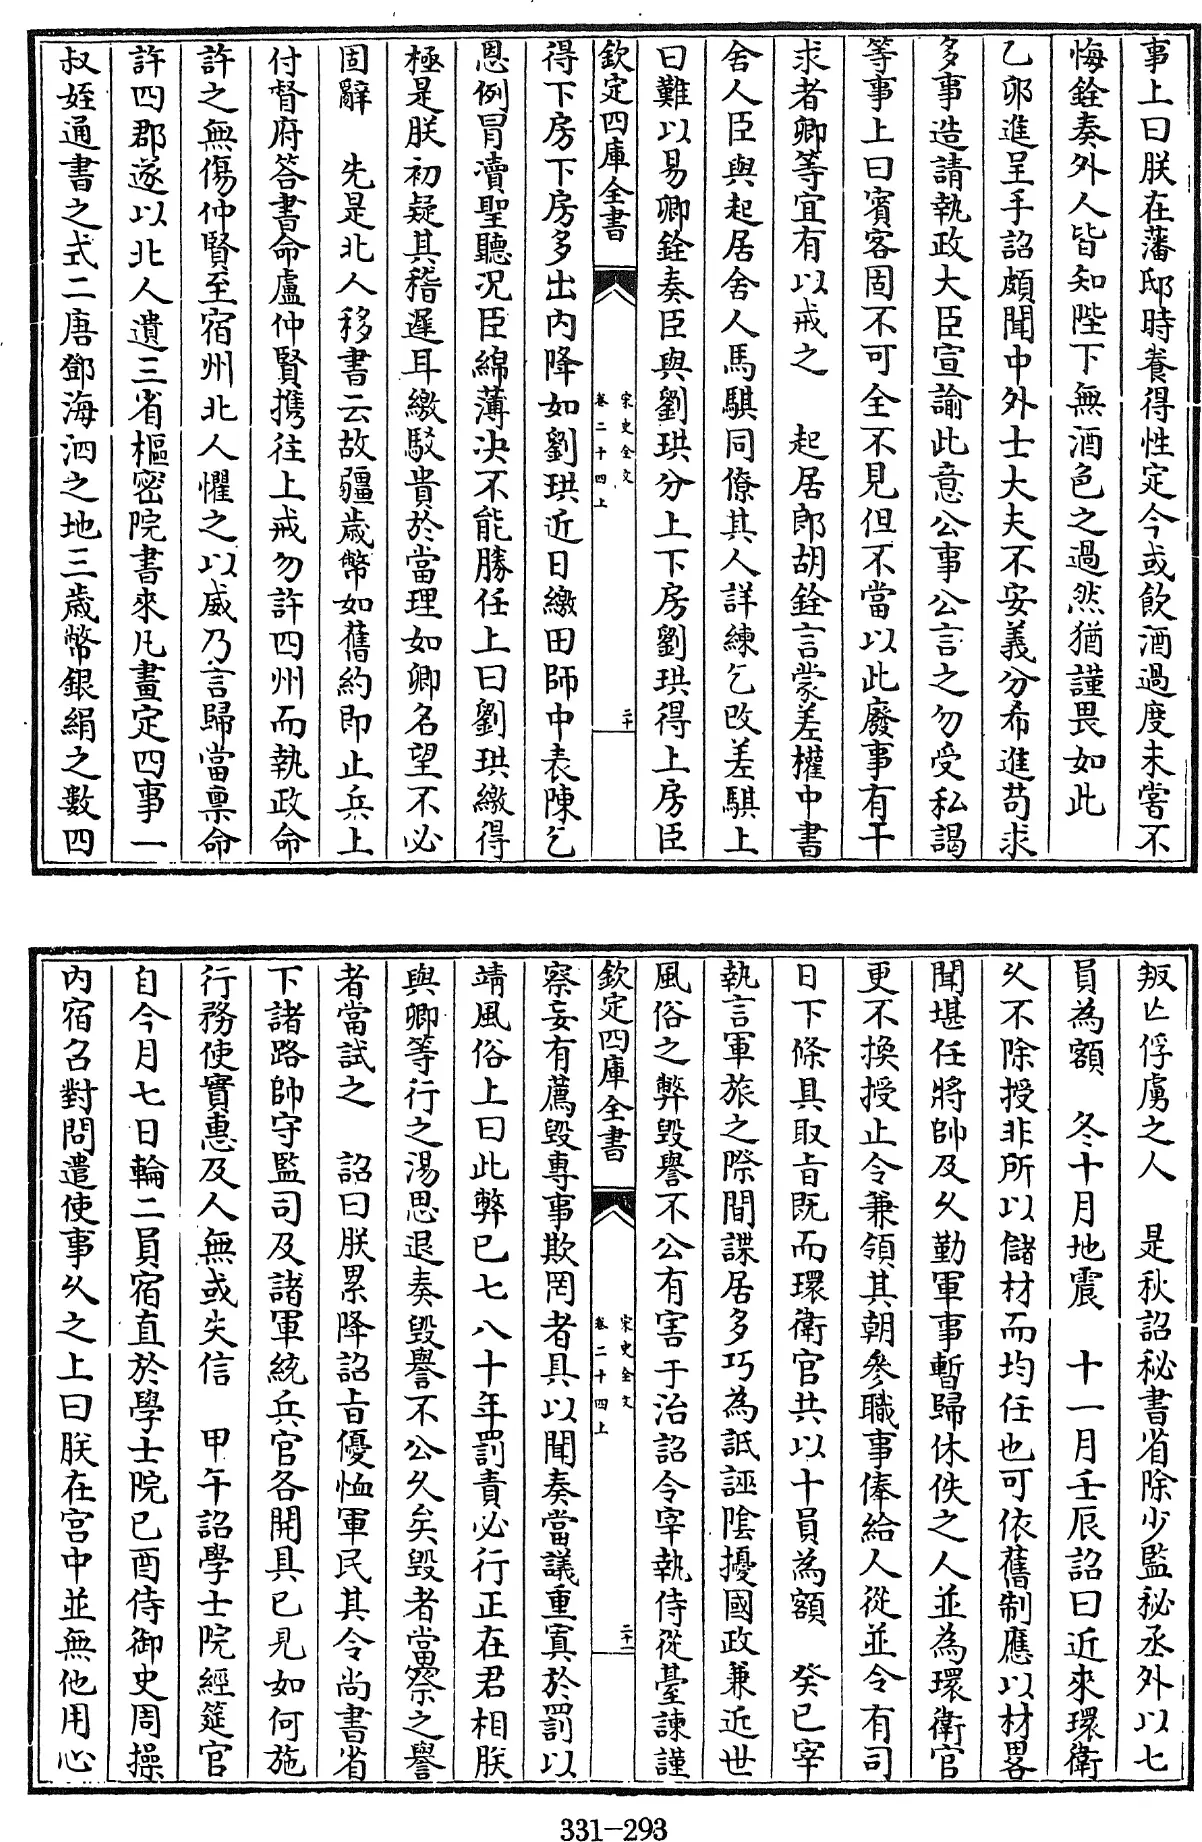 事上曰朕在藩邸時養得性定今或飲酒過度未嘗不
悔銓奏外人皆知陛下無酒色之過然猶謹畏如此
乙卯進呈手詔頗聞中外士大夫不安義分希進苟求
多事造請執政大臣宣諭此意公事公言之勿受私謁
等事上曰賓客固不可全不見但不當以此廢事有干
求者卿等宜有以戒之　起居郎胡銓言蒙差權中書
舍人臣與起居舍人馬騏同僚其人詳練乞改差騏上
曰難以易卿銓奏臣與劉珙分上下房劉珙得上房臣
欽定四庫全書
宋史全文
卷二十四上
二十
得下房下房多出内降如劉珙近日繳田師中表陳乞
恩例冒瀆聖聽况臣綿薄决不能勝任上曰劉珙繳得
極是朕初疑其稽遲耳繳駁貴於當理如卿名望不必
固辭　先是北人移書云故疆歲幣如舊約即止兵上
付督府答書命盧仲賢携往上戒勿許四州而執政命
許之無傷仲賢至宿州北人懼之以威乃言歸當禀命
許四郡遂以北人遺三省樞密院書來凡畫定四事一
叔姪通書之式二唐鄧海泗之地三歲幣銀絹之數四
叛亡俘虜之人　是秋詔秘書省除少監秘丞外以七
員為額　冬十月地震　十一月壬辰詔曰近來環衛
久不除授非所以儲材而均任也可依舊制應以材畧
聞堪任將帥及久勤軍事暫歸休佚之人並為環衛官
更不換授止令兼領其朝參職事俸給人從並令有司
日下條具取旨既而環衛官共以十員為額　癸巳宰
執言軍旅之際間諜居多巧為詆誣陰擾國政兼近世
風俗之弊毀譽不公有害于治詔令宰執侍從臺諫謹
欽定四庫全書
宋史全文
卷二十四上
二十一
察妄有薦毀專事欺罔者具以聞奏當議重寘於罰以
靖風俗上曰此弊已七八十年罰責必行正在君相朕
與卿等行之湯思退奏毀譽不公久矣毀者當察之譽
者當試之　詔曰朕累降詔旨優恤軍民其令尚書省
下諸路帥守監司及諸軍統兵官各開具已見如何施
行務使實惠及人無或失信　甲午詔學士院經筵官
自今月七日輪二員宿直於學士院已酉侍御史周操
内宿召對問遣使事久之上曰朕在宫中並無他用心
331-293